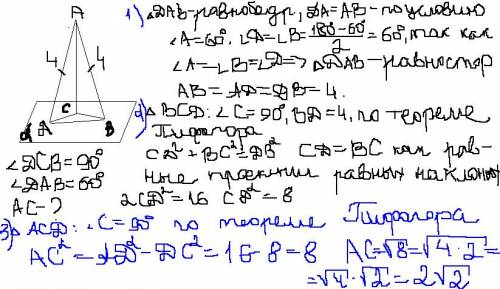 A
4 4
C
Д B
α
∠DCB=90°
∠DAB=60°
AC-?
1) △DAB-равнобедр, DA=AB-по условию
∠A=60°. ∠D=∠B=(180-60)/2=60°, так как
∠A=∠B=∠D=> △DAB-равностор
AB=AD=DB=4.
2) △BCD: ∠C=90°, BD=4, по теореме
Пифагора
CD²+BC²=DB² CD=BC как рав-
ные проекции равных наклонных
2CD²=16 CD²=8
3) △ACD: ∠C=90° по теореме Пифагора
AC²=AD²-DC²=16-8=8 AC=√8=√4·2=
=√4·√2=2√2